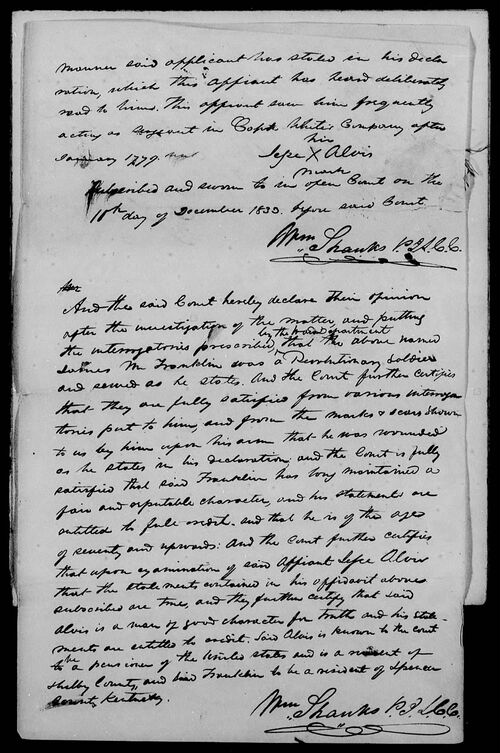 manner said applicant has stated in his decla
ration, which this affiant has heard deliberately
read to him. This affiant saw him frequently
acting as sergeant in Capt. White's Company after
January 1779.
his
Jesse X Alvis
mark
Subscribed and sworn to in open Court on the
10th day of December 1833. before said Court
Wm Shanks P.J.S.C.C.
And the said Court hereby declare their opinion
after the investigation of the matter, and putting
by the war department
the interrogatories prescribed, that the above named
James M Franklin was a Revolutionary Soldier
and served as he states. And the Court further certifies
that they are fully satisfied from various interroga
tories put to him, and from the marks & scars shown
to us by him upon his arm that he was wounded
as he states in his declaration, and the Court is fully
satisfied that said Franklin has long maintained a
fair and reputable character, and his statements are
entitled to full credit. and that he is of the age
of seventy and upwards: And the Court further certifies
that upon examination of said Affiant Jesse Alvis
that the statements contained in his affidavit above
subscribed are true, and they further certify that said
Alvis is a man of good character for truth and his state-
ments are entitled to credit. Said Alvis is known to the court
to be a pensioner of the United States and is a resident of
Shelby County, and said Franklin to be a resident of Spencer
County Kentucky.
Wm Shanks P.J.S.C.C.